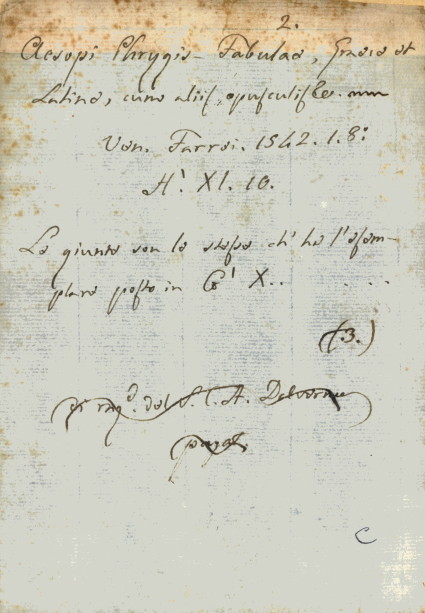 2.
Aesopi Phrygis Fabulae, Graece et
Latine, cum aliis opusculis &c.
Ven. Farrei. 1542. 1. 8º
H¹. XI. 10.
Le giunte son le stesse ch' ha l'esem-
plare posto in G¹ X.. ...
(3.)
di rag.e del S. C. A.
C